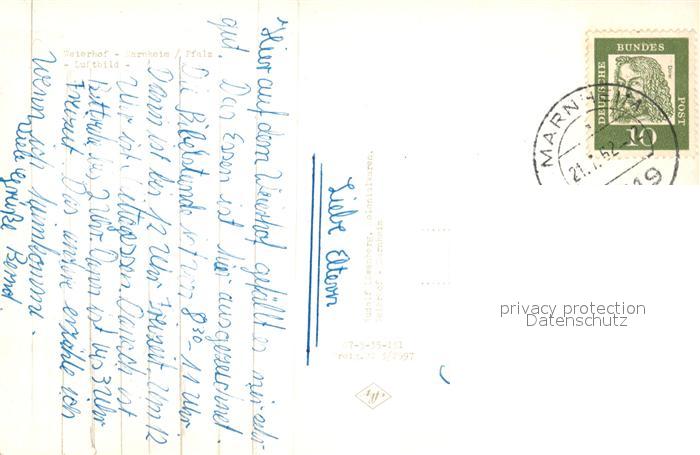 Weierhof - Marnheim / Pfalz -
- Luftbild -
Liebe Eltern
Hier auf dem Weierhof gefällt es mir sehr
gut. Das Essen ist hier ausgezeichnet.
Die Bibelstunde ist von 8³⁰-11 Uhr
Dann ist bis 12 Uhr Freizeit. Um 12
Uhr ist Mittagessen. Danach ist
Bettruhe bis 2 Uhr. Dann ist bis 3 Uhr
Freizeit. Das andere erzähle ich
wenn ich heimkomme.
Viele Grüße Bernd.
Rudolf Löwenberg, Kolonialwaren,
Weierhof - Marnheim
67-5-35-151
5/2597
DEUTSCHE
BUNDES
POST
Dürer
10
MARNHEIM
21.7.62-
19
privacy protection
Datenschutz